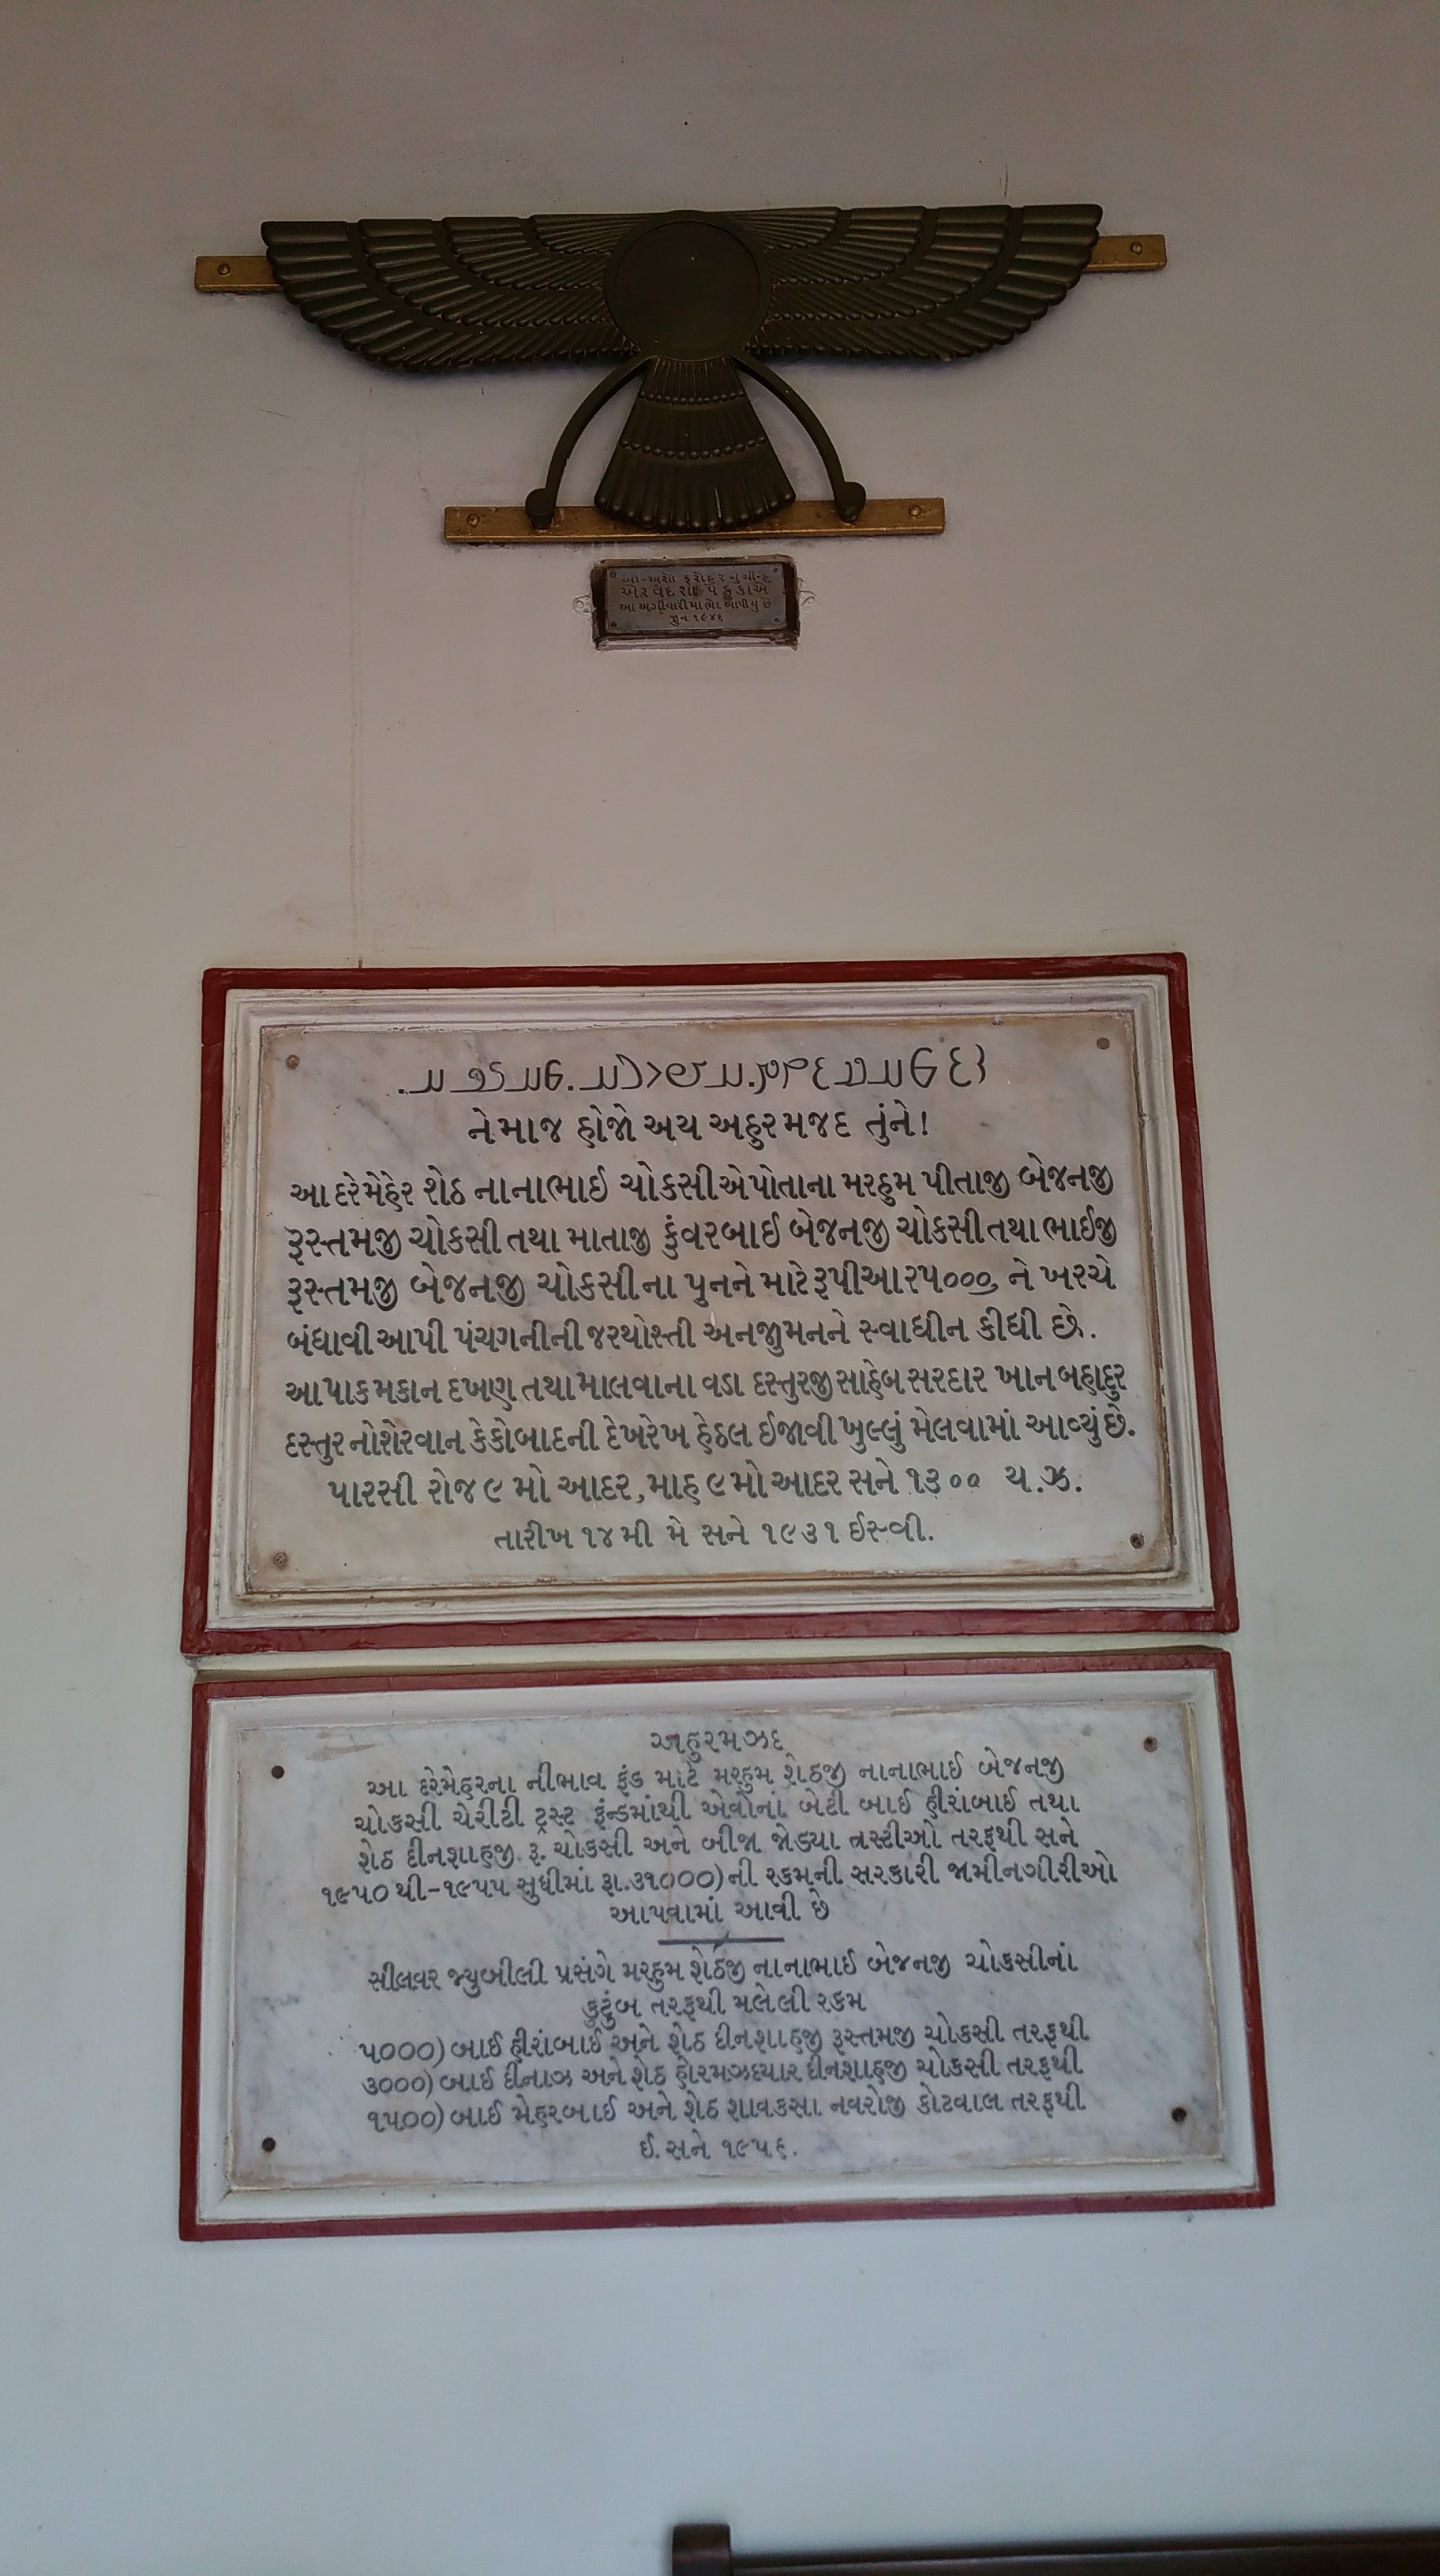 આ-અશો ફરોહરનુ ચીન્હ
એરવદ શા પ કુકાએ
આ અગીયારીમા ભેટ આપીયુ છે
જુન ૧૯૪૬
નેમાજ હોજો અય અહુરમજદ તુંને!
આ દરેમેહેર શેઠ નાનાભાઈ ચોકસીએ પોતાના મરહુમ પીતાજી બેજનજી
રૂસ્તમજી ચોકસી તથા માતાજી કુંવરબાઈ બેજનજી ચોકસી તથા ભાઈજી
રૂસ્તમજી બેજનજી ચોકસીના પુનને માટે રૂપીઆ ૨૫૦૦૦ ને ખરચે
બંધાવી આપી પંચગનીની જરથોસ્તી અનજુમનને સ્વાધીન કીધી છે.
આ પાક મકાન દખણ તથા માલવાના વડા દસ્તુરજી સાહેબ સરદાર ખાન બહાદુર
દસ્તુર નોશેરવાન કેકોબાદની દેખરેખ હેઠલ ઈજાવી ખુલ્લું મેલવામાં આવ્યું છે.
પારસી રોજ ૯ મો આદર, માહ ૯ મો આદર સને ૧૩૦૦ ય.ઝ.
તારીખ ૧૪મી મે સને ૧૯૩૧ ઈસ્વી.
અહુરમઝદ
આ દરેમેહરના નીભાવ ફંડ માટે મરહુમ શેઠજી નાનાભાઈ બેજનજી
ચોકસી ચેરીટી ટ્રસ્ટ ફંન્ડમાંથી એવોનાં બેટી બાઈ હીરાંબાઈ તથા
શેઠ દીનશાહજી રૂ. ચોકસી અને બીજા જોડયા ત્રસ્ટીઓ તરફથી સને
૧૯૫૦ થી-૧૯૫૫ સુધીમાં રૂા.૩૧૦૦૦)ની રકમની સરકારી જામીનગીરીઓ
આપવામાં આવી છે
સીલવર જ્યુબીલી પ્રસંગે મરહુમ શેઠજી નાનાભાઈ બેજનજી ચોકસીનાં
કુટુંબ તરફથી મલેલી રકમ
૫૦૦૦) બાઈ હીરાંબાઈ અને શેઠ દીનશાહજી રૂસ્તમજી ચોકસી તરફથી
૩૦૦૦) બાઈ દીનાઝ અને શેઠ હોરમઝદયાર દીનશાહજી ચોકસી તરફથી
૧૫૦૦) બાઈ મેહરબાઈ અને શેઠ શાવકસા નવરોજી કોટવાલ તરફથી
ઈ. સને ૧૯૫૬.